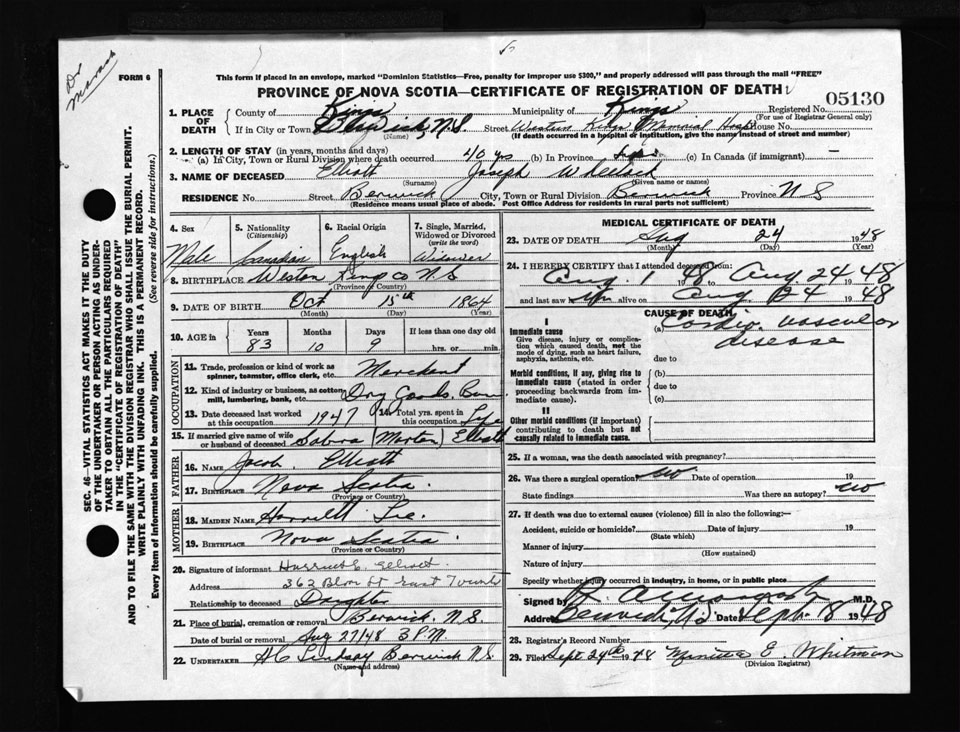 Dr
FORM 6
This form if placed in an envelope, marked "Dominion Statistics—Free, penalty for improper use $300," and properly addressed will pass through the mail "FREE"
PROVINCE OF NOVA SCOTIA—CERTIFICATE OF REGISTRATION OF DEATH
05130
1. PLACE OF DEATH County of Kings Municipality of Kings Registered No.
(For use of Registrar General only)
If in City or Town Berwick, N.S. Street Western Kings Memorial Hosp House No.
(Name) (If death occurred in a hospital or institution, give the name instead of street and number)
2. LENGTH OF STAY (in years, months and days)
(a) In City, Town or Rural Division where death occurred 40 yrs (b) In Province (c) In Canada (if immigrant) —
3. NAME OF DECEASED Elliott Joseph Wheelock
(Surname) (Given name or names)
RESIDENCE No. Street Berwick City, Town or Rural Division Berwick Province N S
(Residence means usual place of abode. Post Office Address for residents in rural parts not sufficient)
4. Sex 5. Nationality (Citizenship) 6. Racial Origin 7. Single, Married, Widowed or Divorced (write the word)
Male Canadian English Widower
8. BIRTHPLACE Weston Kings co N.S.
(Province or Country)
9. DATE OF BIRTH Oct 15th 1864
(Month) (Day) (Year)
10. AGE in Years Months Days If less than one day old
83 10 9 hrs. or min.
OCCUPATION
11. Trade, profession or kind of work as spinner, teamster, office clerk, etc. Merchant
12. Kind of industry or business, as cotton mill, lumbering, bank, etc. Dry Goods.
13. Date deceased last worked at this occupation 1947 14. Total yrs. spent in this occupation Life
15. If married give name of wife or husband of deceased Sabra (Morton) Elliott
FATHER
16. NAME Jacob Elliott
17. BIRTHPLACE Nova Scotia.
(Province or Country)
MOTHER
18. MAIDEN NAME Harriett Lee.
19. BIRTHPLACE Nova Scotia.
(Province or Country)
20. Signature of informant Harriet E. Elliott
Address 362 Bloor St East Toronto
Relationship to deceased Daughter
21. Place of burial, cremation or removal Berwick, N.S.
Date of burial or removal Aug 27/48 3 P.M.
22. UNDERTAKER H C Lindsay Berwick N.S.
(Name and address)
MEDICAL CERTIFICATE OF DEATH
23. DATE OF DEATH Aug 24 1948
(Month) (Day) (Year)
24. I HEREBY CERTIFY that I attended deceased from:
Aug. 1 1948 to Aug. 24 1948
and last saw him alive on Aug. 24 1948
CAUSE OF DEATH
I
Immediate cause (a) Cardio vascular disease
Give disease, injury or complication which caused death, not the mode of dying, such as heart failure, asphyxia, asthenia, etc. due to
Morbid conditions, if any, giving rise to immediate cause (stated in order proceeding backwards from immediate cause). (b)
due to
(c)
II
Other morbid conditions (if important) contributing to death but not causally related to immediate cause.
25. If a woman, was the death associated with pregnancy?
26. Was there a surgical operation? no Date of operation 19
State findings Was there an autopsy? no
27. If death was due to external causes (violence) fill in also the following:—
Accident, suicide or homicide? Date of injury 19
(State which)
Manner of injury
(How sustained)
Nature of injury
Specify whether injury occurred in industry, in home, or in public place
Signed by M.D.
Address Berwick, N.S. Date Sept. 8 1948
28. Registrar's Record Number
29. Filed Sept 24th 1948 E. Whitman
(Division Registrar)
SEC. 46—VITAL STATISTICS ACT MAKES IT THE DUTY
OF THE UNDERTAKER OR PERSON ACTING AS UNDERTAKER TO OBTAIN ALL THE PARTICULARS REQUIRED
IN THE "CERTIFICATE OF REGISTRATION OF DEATH"
AND TO FILE THE SAME WITH THE DIVISION REGISTRAR WHO SHALL ISSUE THE BURIAL PERMIT.
WRITE PLAINLY WITH UNFADING INK. THIS IS A PERMANENT RECORD.
Every item of information should be carefully supplied. (See reverse side for instructions.)